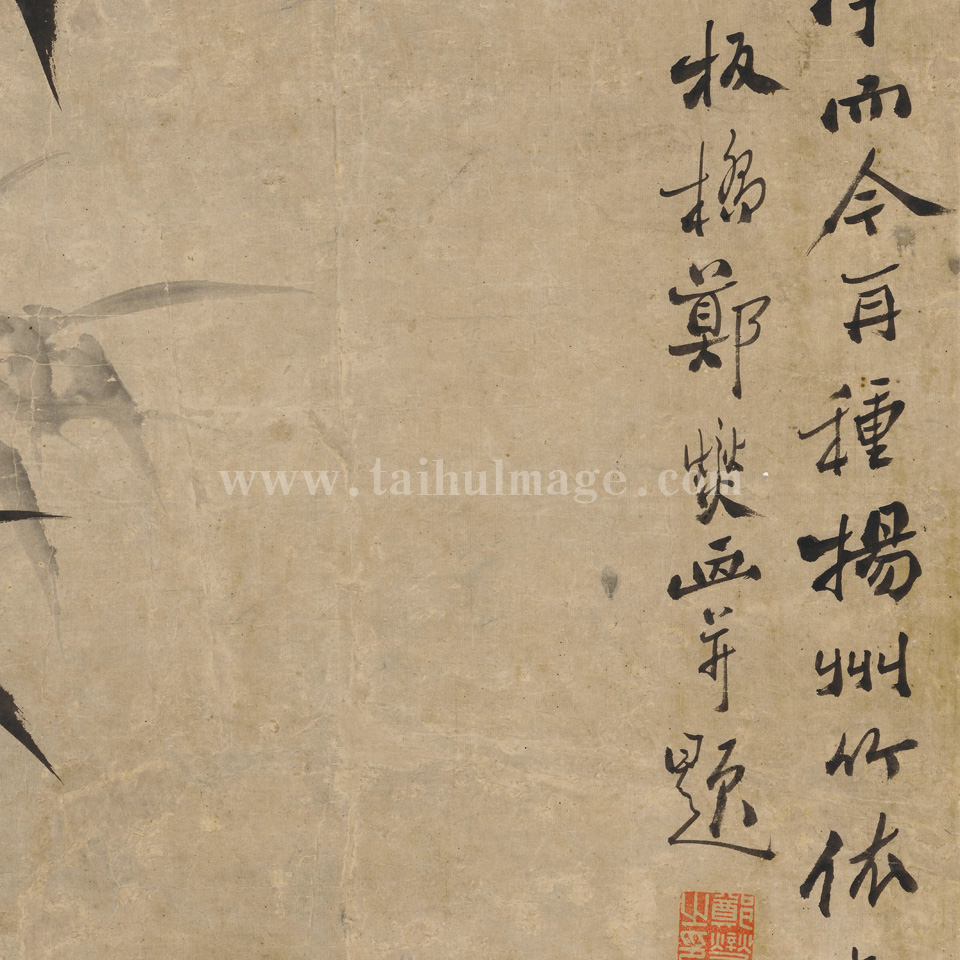 而今再種揚州竹依
板橋鄭燮畫并題
www.taihuImage.com
鄭燮之印